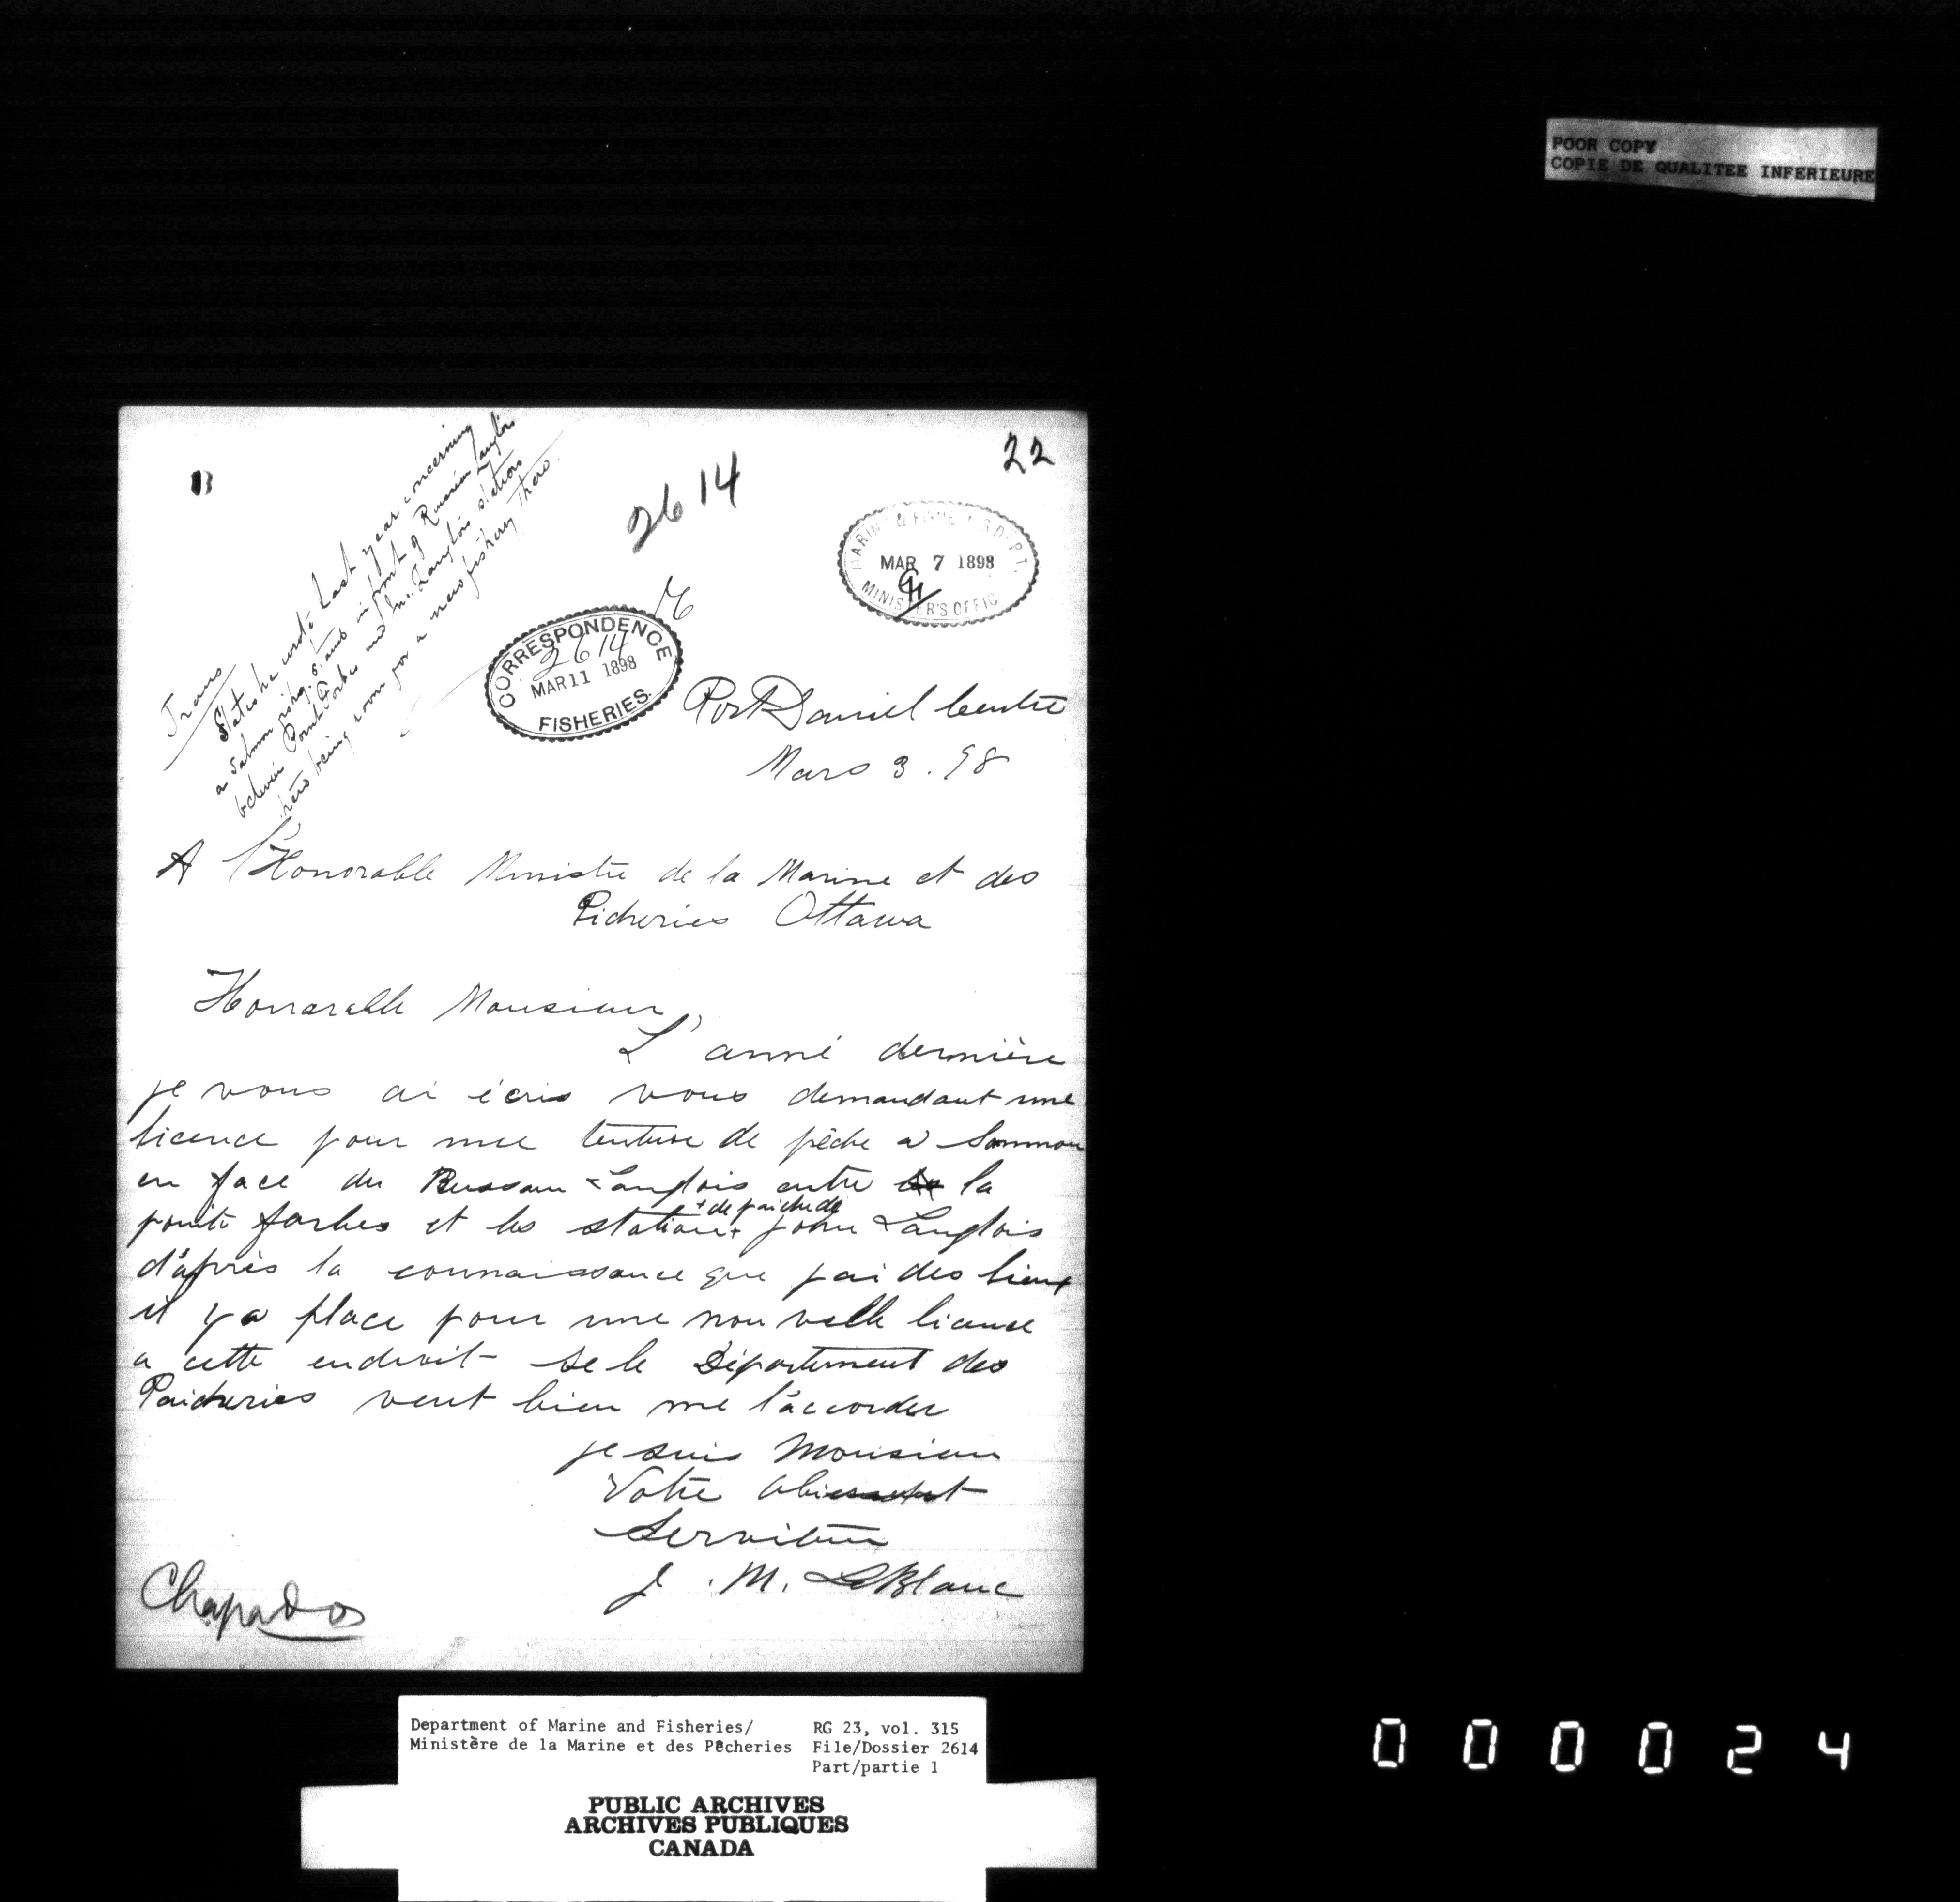 POOR COPY
COPIE DE QUALITEE INFERIEURE
B
2614
22
Trans
States he wrote last year concerning
a salmon fishg. stand in front of Ruisseau Langlois
between Point Forbes and Jn. Langlois stations
there being room for a new fishery there.
MARINE & FISHERIES DEPT.
MAR 7 1898
MINISTER'S OFFIC
CORRESPONDENCE
2614
MAR 11 1898
FISHERIES.
Port Daniel Centre
Mars 3. 98
A l'Honorable Ministre de la Marine et des
Picheries Ottawa
Honorable Monsieur,
L'anné dernière
je vous ai écris vous demandant une
licence pour une tenture de pêche a Sommon
en face du Russau Langlois entre la
pointe forbes et les station + de paiche de John Langlois
d'après la connaissance que j'ai des lieux
il y a place pour une nouvelle licence
a cette endroit se le Département des
Paicheries veut bien me l'accorder
je suis Monsieur
Votre
Serviteur
J. M. LeBlanc
Chapados
Department of Marine and Fisheries/
Ministère de la Marine et des Pêcheries
RG 23, vol. 315
File/Dossier 2614
Part/partie 1
PUBLIC ARCHIVES
ARCHIVES PUBLIQUES
CANADA
000024